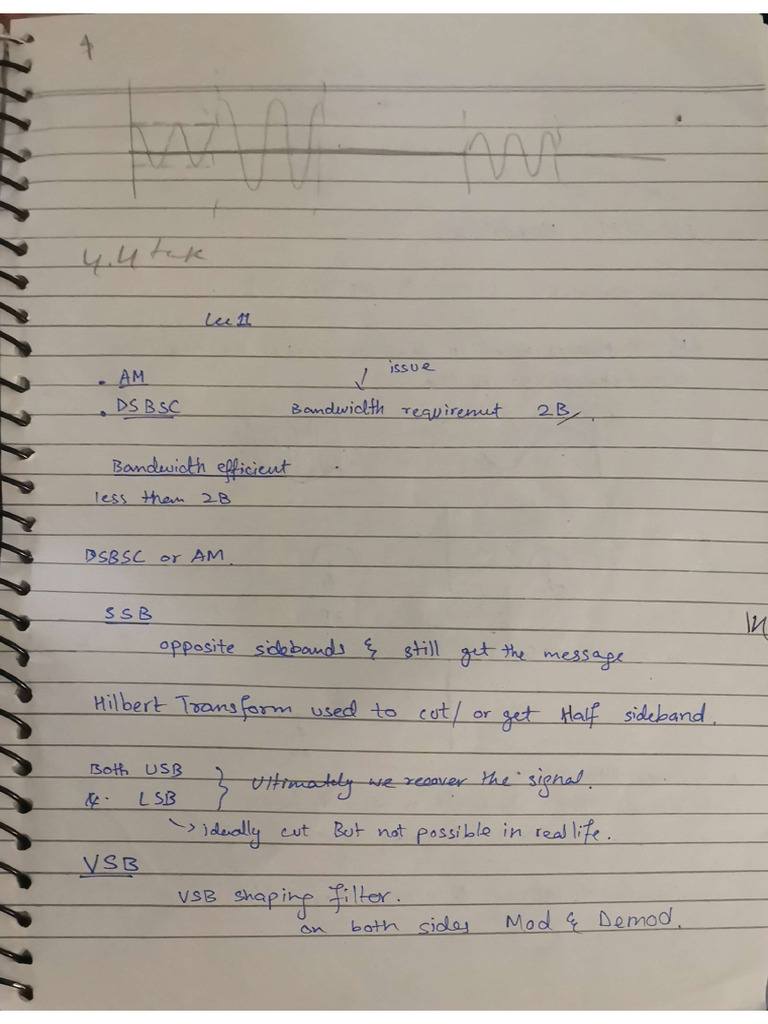 4.4 tak
Lec 11
issue
• AM
• DSBSC Bandwidth requiremnt 2B
Bandwidth efficient
less them 2B
DSBSC or AM.
SSB
opposite sidebands & still get the message
Hilbert Transform used to cut/ or get Half sideband.
Both USB
& LSB } Ultimately we recover the signal.
↳ ideally cut But not possible in real life.
VSB
VSB shaping filter.
on both sides Mod & Demod.